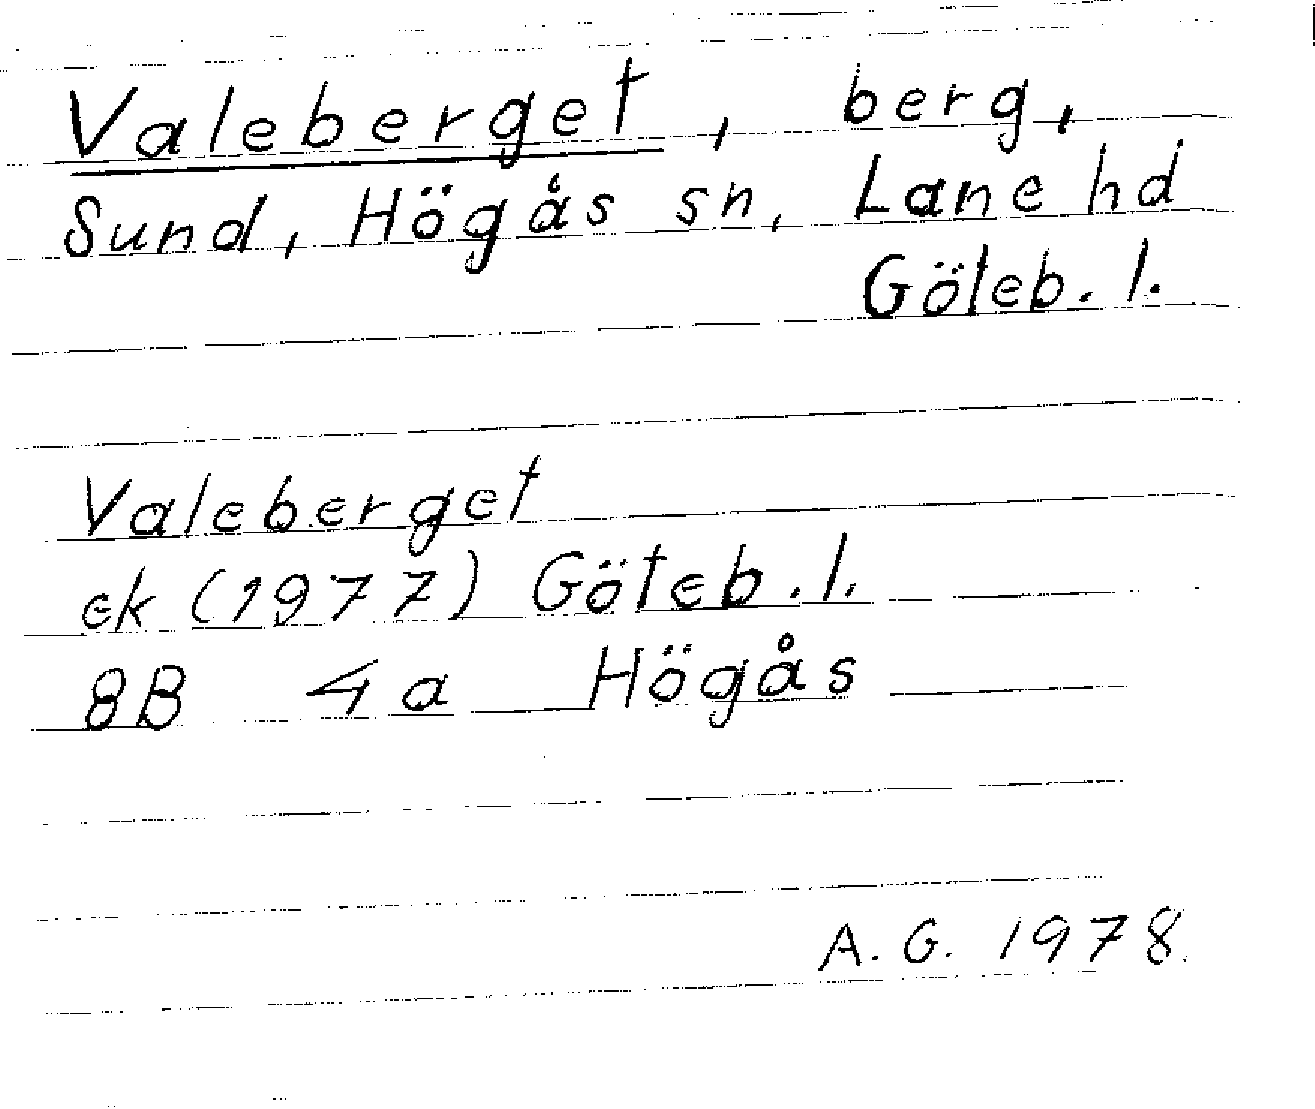 Valeberget, berg,
Sund, Högås sn, Lane hd
Göteb. l.
Valeberget
ek (1977) Göteb. l.
8B 4a Högås
A. G. 1978.